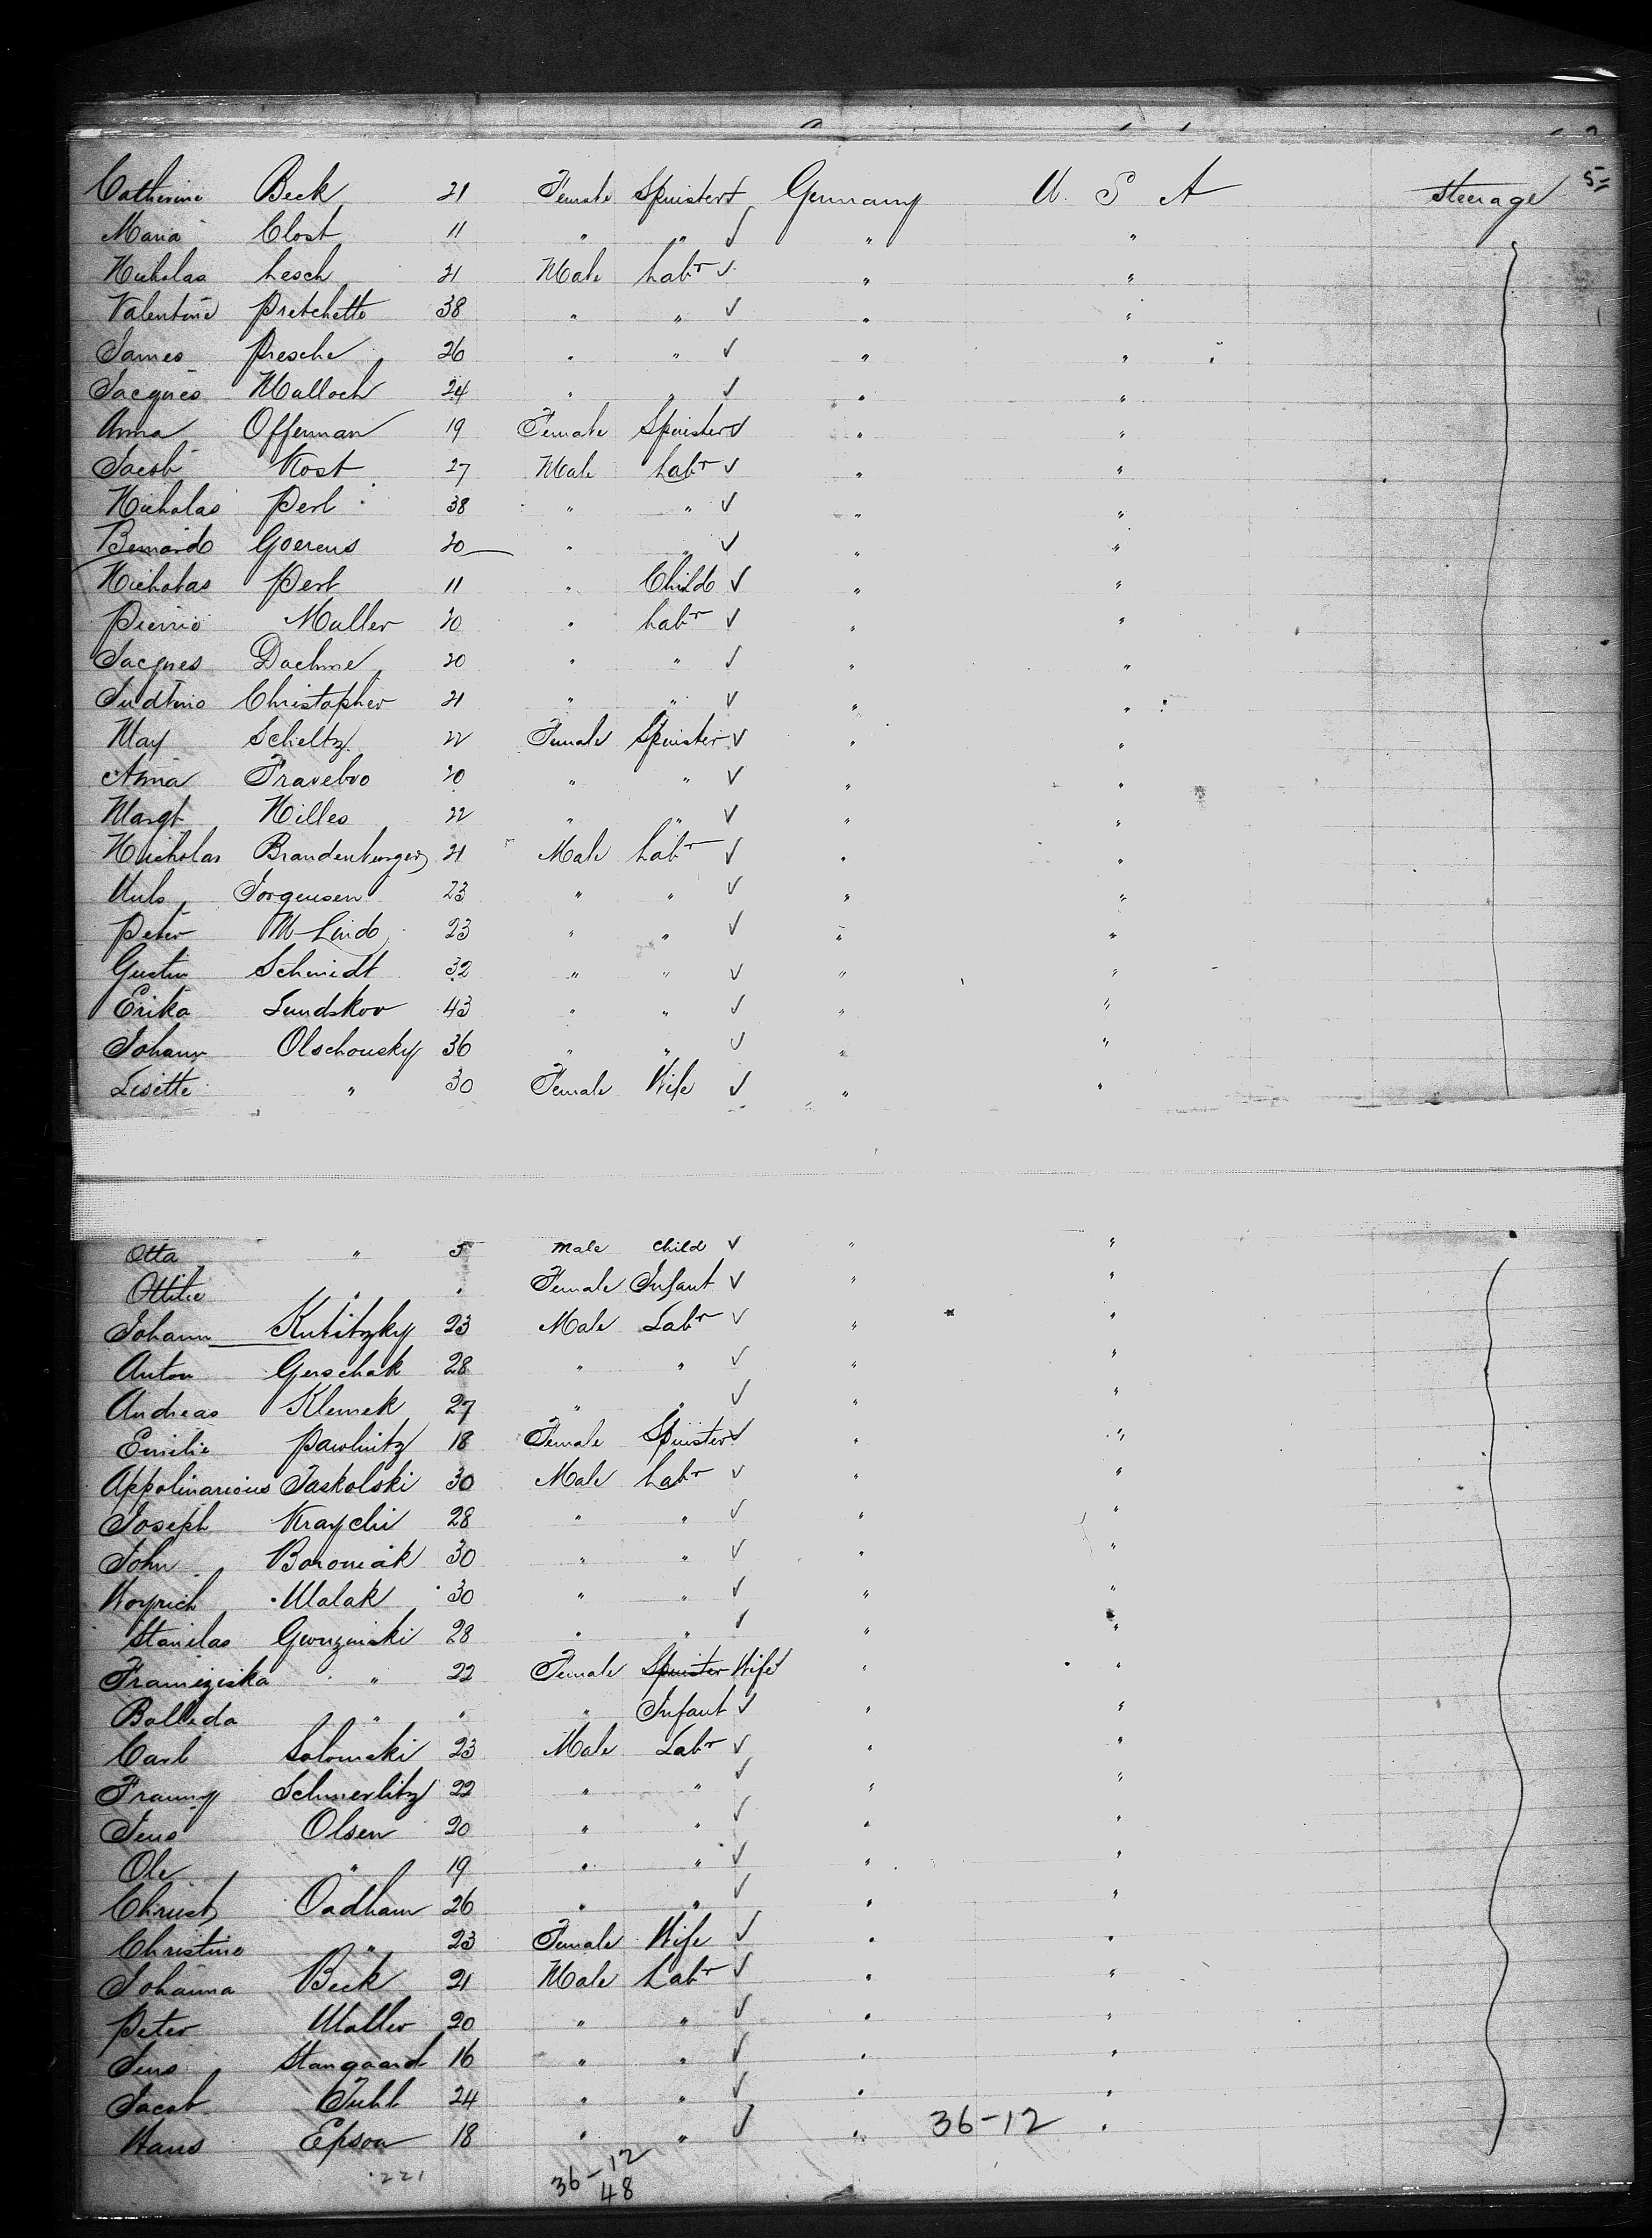 5
Catherine Beck 21 Female Spinster Germany U. S A Steerage
Maria Clost 11 " " √ " "
Nicholas Lesch 21 Male Labr √ " "
Valentine Pretchette 38 " " √ " "
James Presche 26 " " √ " "
Jacques Malloch 24 " " √ " "
Anna Offerman 19 Female Spinster √ " "
Jacob Kost 27 Male Labr √ " "
Nicholas Perl 38 " " √ " "
Bernard Goerens 20 " " √ " "
Nicholas Perl 11 " Child √ " "
Pierrie Muller 20 " Labr √ " "
Jacques Dachme 20 " " √ " "
Christopher 21 " " √ " "
May Scheltz 22 Female Spinster √ " "
Anna 20 " " √ " "
Margt Hilles 22 " " √ " "
Nicholas Brandenburger 21 Male Labr √ " "
Jorgensen 23 " " √ " "
Peter M Lind 23 " " √ " "
Gustin Schmidt 32 " " √ " "
Erika Lundskov 43 " " √ " "
Johann Olschousky 36 " " √ " "
Lisette " 30 Female Wife √ " "
Otta " 5 Male Child √ " "
Ottilie " " Female Infant √ " "
Johann Kutitzky 23 Male Labr √ " "
Anton Gerschak 28 " " √ " "
Andreas Klemek 27 " " √ " "
Emilie Pawlnitz 18 Female Spinster √ " "
Appolinarious Jaskolski 30 Male Labr √ " "
Joseph Kraychi 28 " " √ " "
John Boroniak 30 " " √ " "
Woyrich Walak 30 " " √ " "
Stanelas 28 " " √ " "
Franziska " 22 Female Spinster Wife " "
Balleda " " " Infant √ " "
Carl Solomski 23 Male Labr √ " "
Franny Schmerlitz 22 " " √ " "
Jens Olsen 20 " " √ " "
Ole " 19 " " √ " "
Christ Oadham 26 " " √ " "
Christine " 23 Female Wife √ " "
Johanna Beck 21 Male Labr √ " "
Peter Waller 20 " " √ " "
Jens Stangaard 16 " " √ " "
Jacob Juhl 24 " " √ " "
Hans Epson 18 " " √ " 36-12 "
221 36-12
48